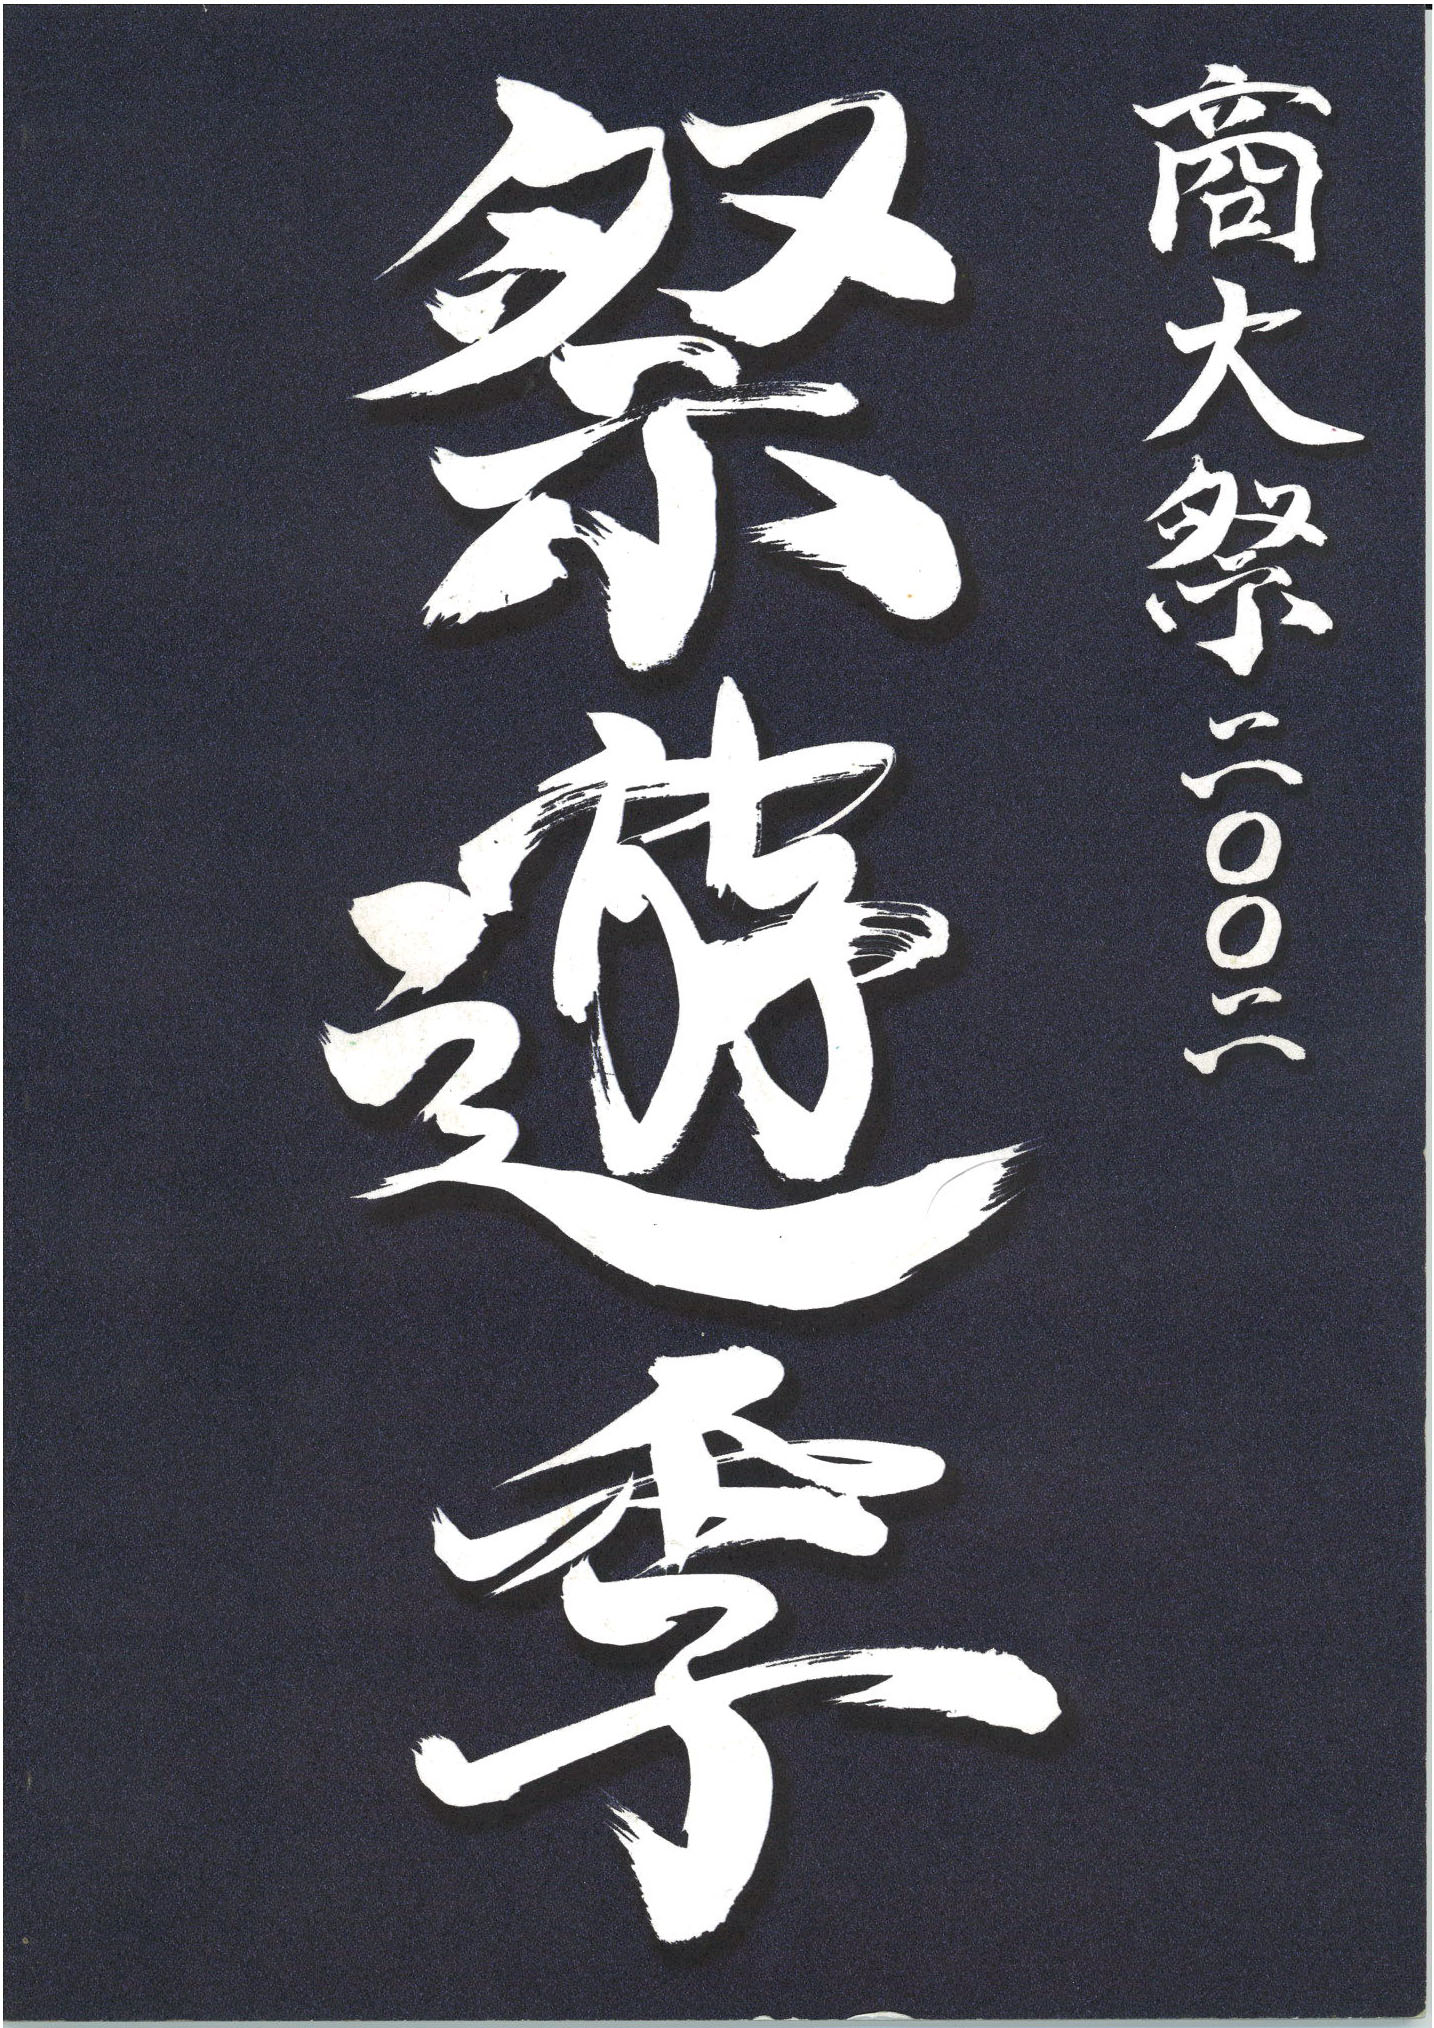 商大祭二〇〇二
祭遊季